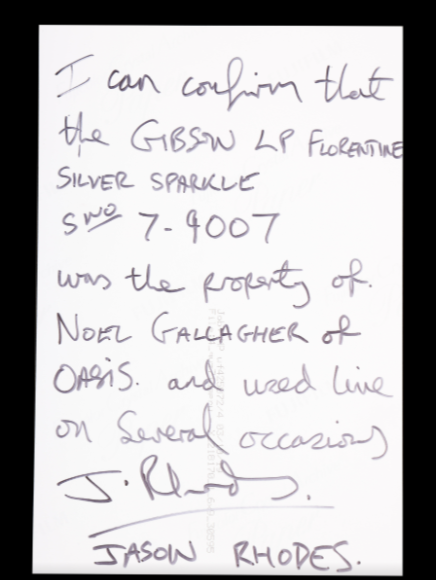 I can confirm that
the GIBSON LP FLORENTINE
SILVER SPARKLE
SNO 7-9007
was the property of.
NOEL GALLAGHER of
OASIS. and used live
on several occasions
J. Rhodes.
JASON RHODES.